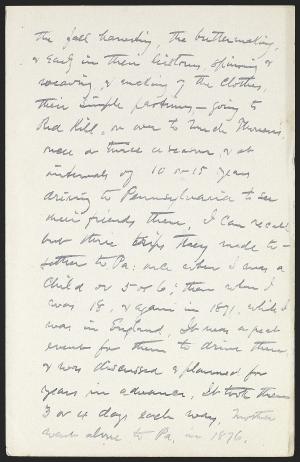 the fall harvesting, the buttermaking,
& early in their history, spinning &
weaving, & making of the clothes,
their simple pastimes, — going to
Red Hill, or over to Uncle Thomas,
once or twice a season, & at
intervals of 10 or 15 years
driving to Pennsylvania to see
their friends there, I can recall
but three trips they made to-
gether to Pa: once when I was a
child of 5 or 6; then when I
was 18, & again in 1891, while I
was in England. It was a great
event for them to drive there,
& was discussed & planned for
years in advance. It took them
3 or 4 days each way. Mother
went alone to Pa. in 1876.